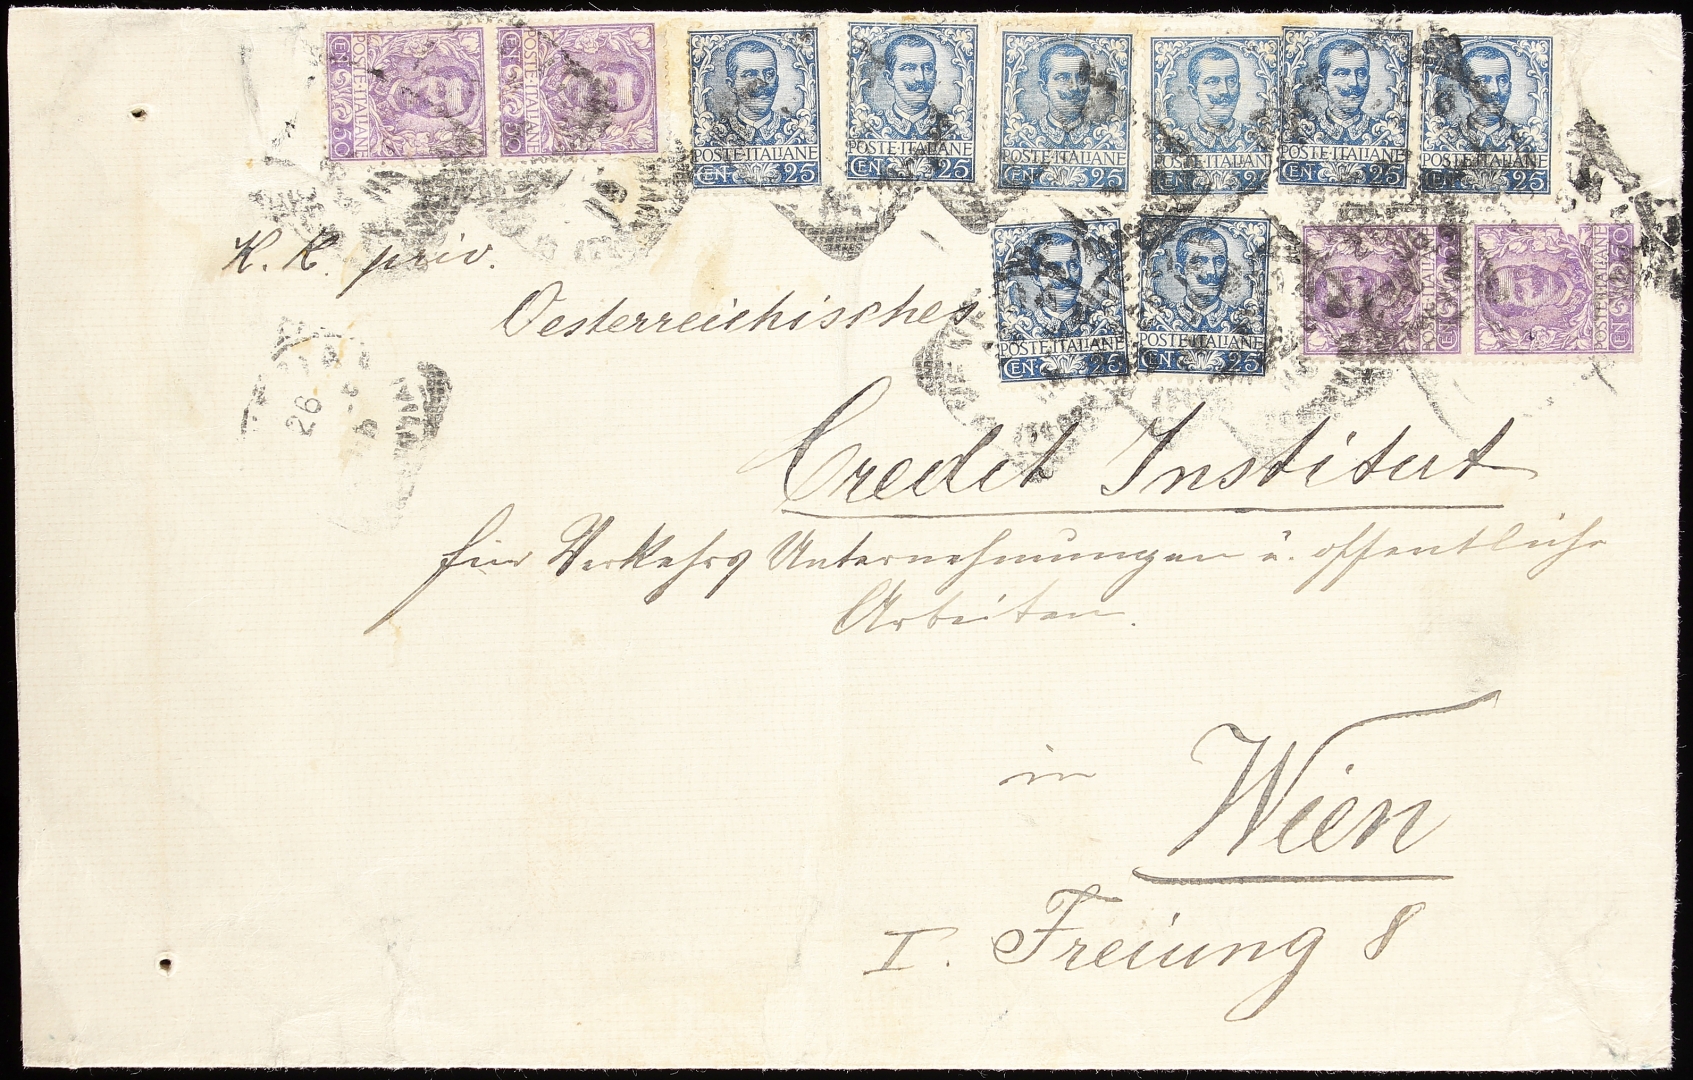 POSTE·ITALIANE CEN 50
POSTE·ITALIANE CEN 50
POSTE·ITALIANE CEN 25
POSTE·ITALIANE CEN 25
POSTE·ITALIANE CEN 25
POSTE·ITALIANE CEN 2
POSTE·ITALIANE CEN 25
POSTE·ITALIANE CEN 25
POSTE·ITALIANE CEN 25
POSTE·ITALIANE CEN 25
POSTE·ITALIANE CEN
POSTE·ITALIANE CEN 50
K. K. priv.
Oesterreichisches
26
Credit Institut
für Verkehrs Unternehmungen u. öffentliche
Arbeiten.
in
Wien
I. Freiung 8